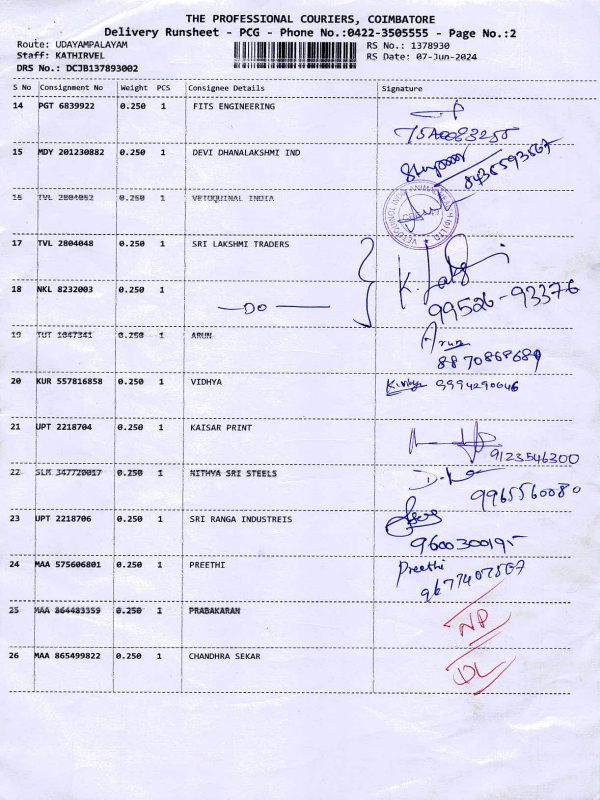 THE PROFESSIONAL COURIERS, COIMBATORE
Delivery Runsheet - PCG - Phone No.:0422-3505555 - Page No.:2
Route: UDAYAMPALAYAM
RS No.: 1378930
Staff: KATHIRVEL
RS Date: 07-Jun-2024
DRS No.: DCJB137893002
S No Consignment No Weight PCS Consignee Details Signature
14 PGT 6839922 0.250 1 FITS ENGINEERING
15 MDY 201230882 0.250 1 DEVI DHANALAKSHMI IND
8435593567
16 TVL 2804052 0.250 1 VETOQUINAL INDIA
17 TVL 2804048 0.250 1 SRI LAKSHMI TRADERS
18 NKL 8232003 0.250 1 —DO—
99526-93376
19 TUT 1047341 0.250 1 ARUN
Arun
8870868689
20 KUR 557816858 0.250 1 VIDHYA
9994290646
21 UPT 2218704 0.250 1 KAISAR PRINT
9123546300
22 SLM 347720017 0.250 1 NITHYA SRI STEELS
9965560080
23 UPT 2218706 0.250 1 SRI RANGA INDUSTREIS
24 MAA 575606801 0.250 1 PREETHI
Preethi
25 MAA 864483359 0.250 1 PRABAKARAN
NP
26 MAA 865499822 0.250 1 CHANDHRA SEKAR
DL